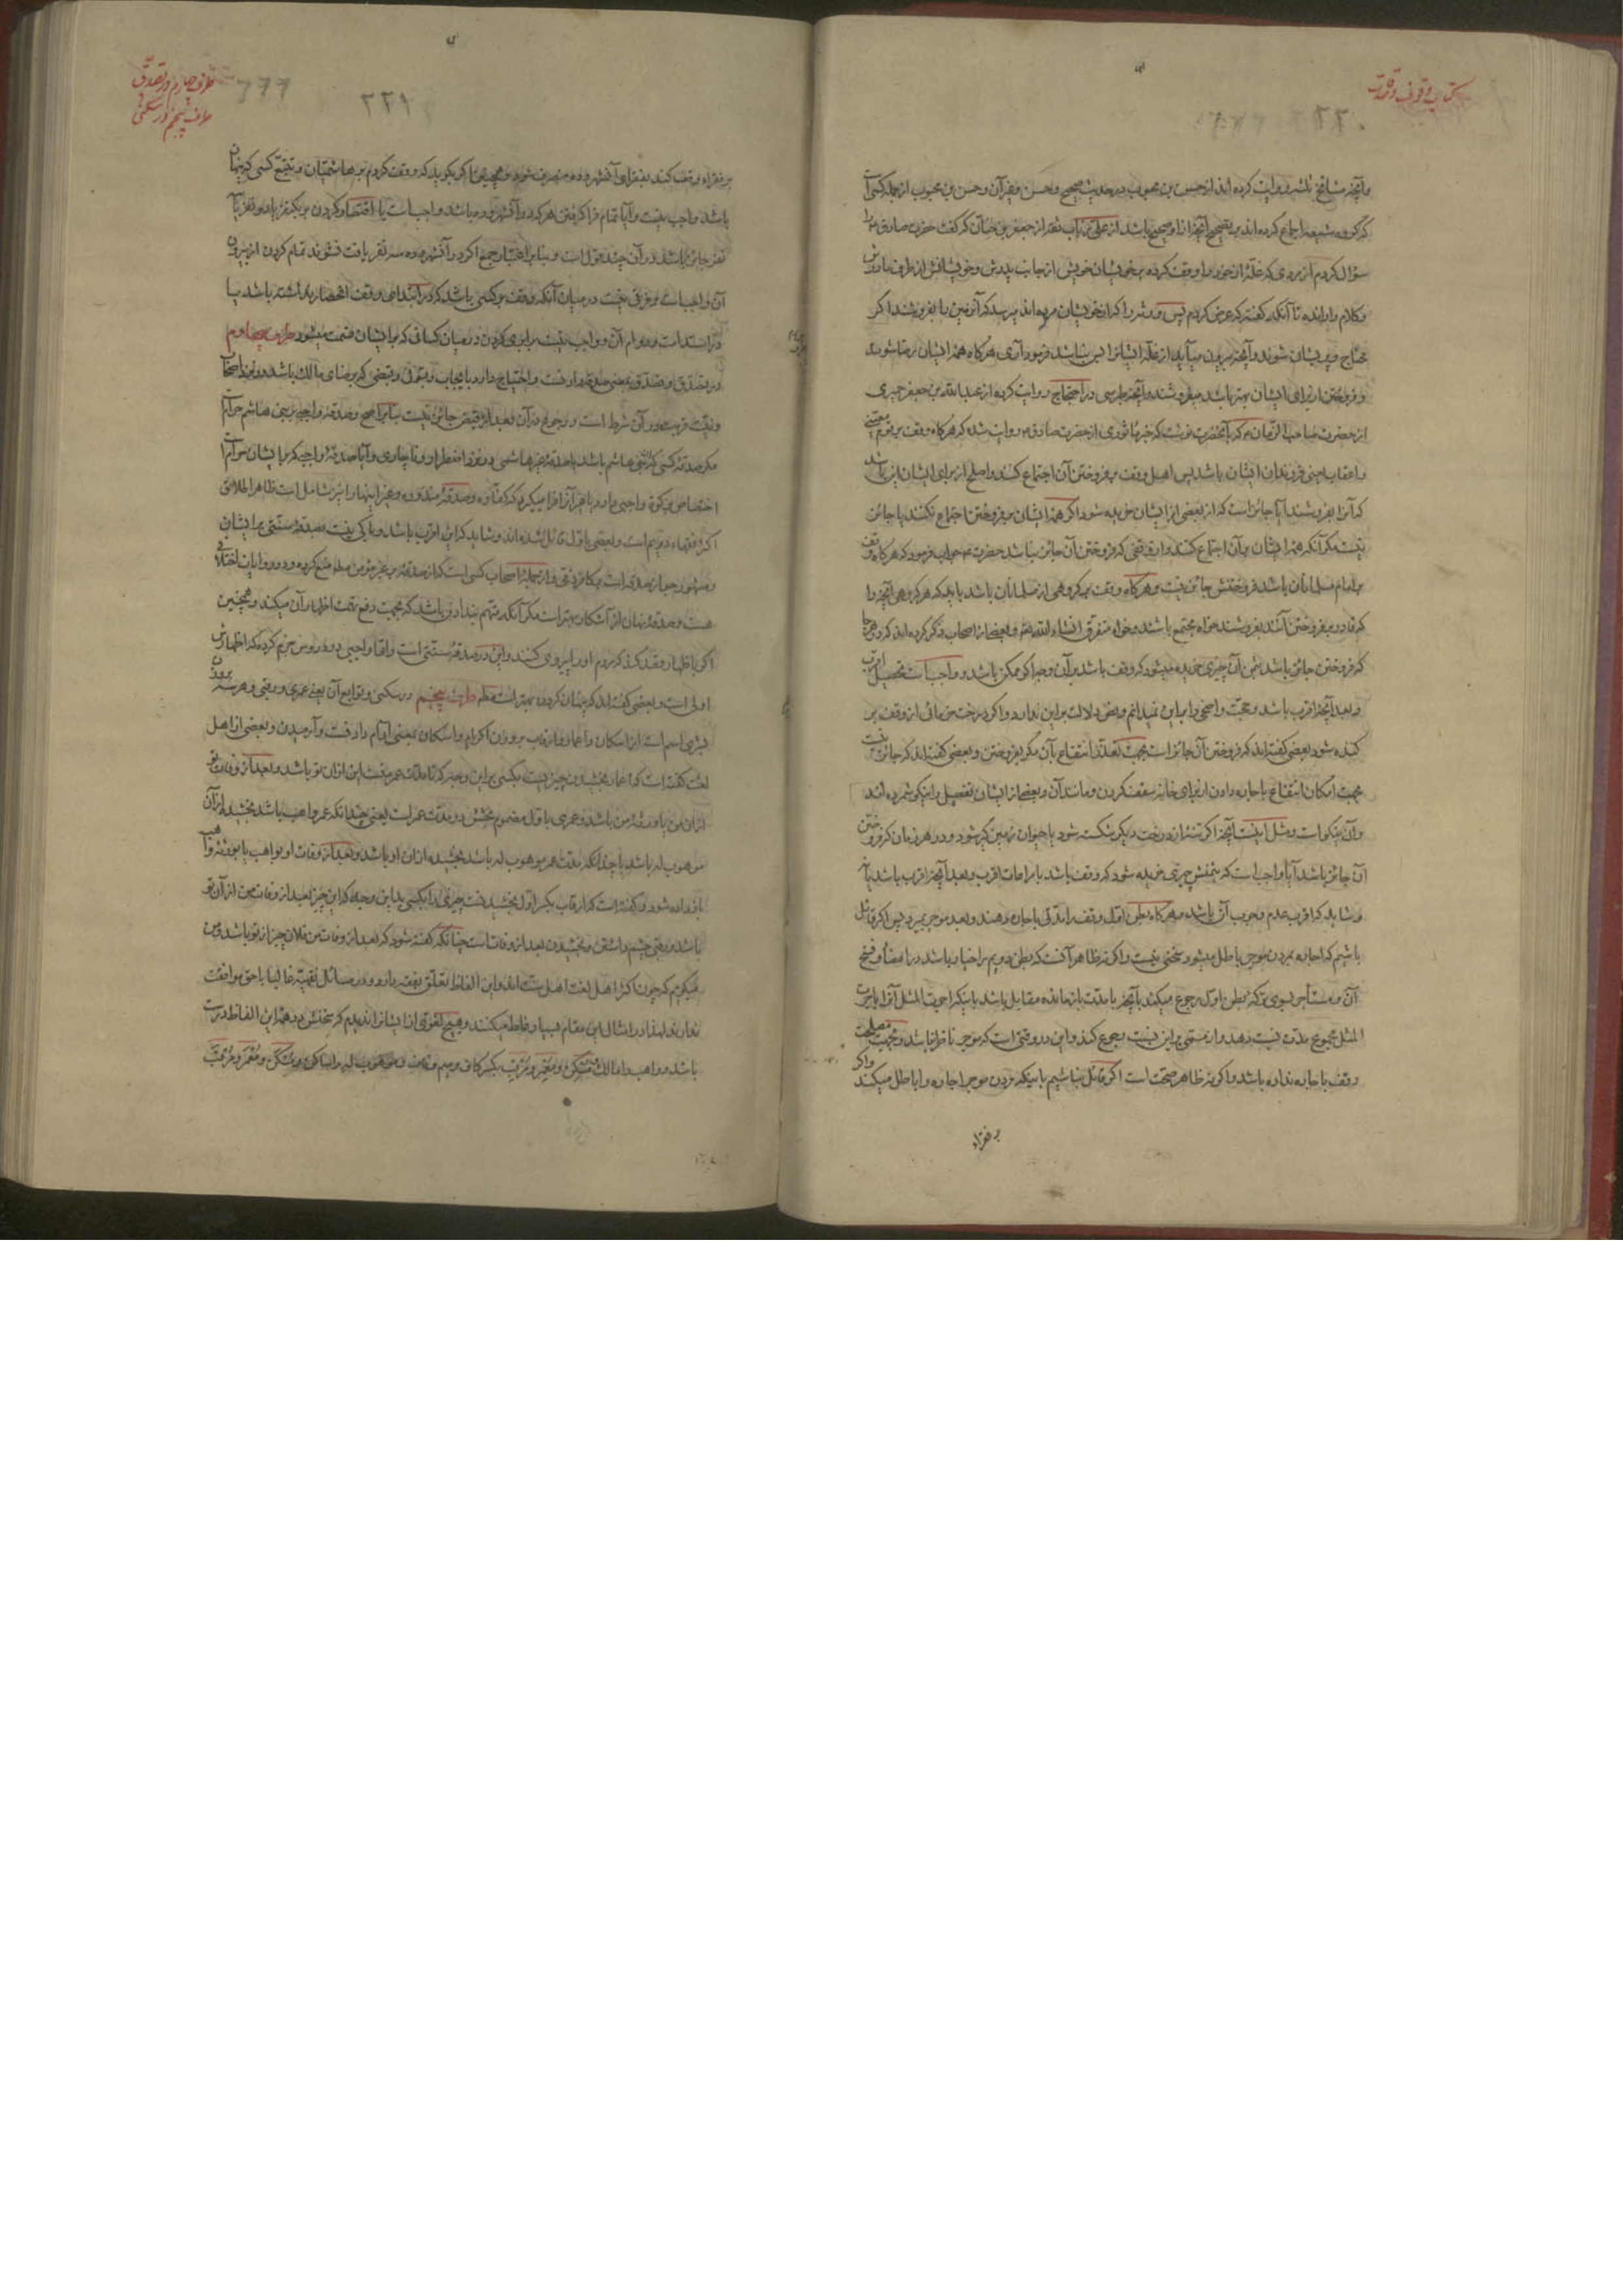 کتاب وقوف و صدقات
و آنچه مشایخ ثلثه روایت کرده اند از حسن بن محبوب در حدیث صحیح و حسن و فقرآن و حسن بن محبوب از جمله کسی است
که گروه شیعه اجماع کرده اند بر تصحیح آنچه از او صحیح باشد از علی بن رئاب ثقه از جعفر بن حنان که گفت حضرت صادق را
سؤال کردم از مردی که غله از خود را وقف کرده بر خویشان خویش از جانب پدرش و خویشانش از طرف مادرش
و کلام را رانده تا آنکه گفته که عرض کردم پس ورثه را که از خویشان مرده اند میرسد که آن زمین را بفروشند اگر
محتاج و پریشان شوند و آنچه بیرون میآید از غله ایشانرا بس نباشد فرمود آری هرگاه همه ایشان رضا شوند
و فروختن از برای ایشان بهتر باشد میفروشند و آنچه طبرسی در احتجاج روایت کرده از عبدالله بن جعفر حمیری
از حضرت صاحب الزمان که بآنحضرت نوشت که خبر ماثوری از حضرت صادق روایت شده که هرگاه وقف بر قوم معینی
و اعقاب یعنی فرزندان ایشان باشد پس اهل وقف بر فروختن آن اجتماع کنند و اصلح از برای ایشان این باشد
که آنرا بفروشند آیا جائز است که از بعضی از ایشان خریده شود اگر همه ایشان بر فروختن اجتماع نکنند یا جائز
نیست مگر آنکه همه ایشان بر آن اجتماع کنند و از وقفی که فروختن آن جائز نباشد حضرت جواب فرمود که هرگاه وقف
بر امام مسلمانان باشد فروختنش جائز نیست و هرگاه وقف بر گروهی از مسلمانان باشد باید که هر گروهی آنچه را
که قادر بفروختن آنند بفروشند خواه مجتمع باشند و خواه متفرق انشاء الله و بعضی از اصحاب ذکر کرده اند که در هر جا
که فروختن جائز باشد بثمن آن چیزی خریده میشود که وقف باشد بر آن وجه اگر ممکن باشد و واجب است تحصیل اقرب
و بعد آنچه اقرب باشد و حجت واضحی را بر این نمیدانم و نص دلالت بر این ندارد و اگر درخت خرمائی از وقف بر
کنده شود بعضی گفته اند که فروختن آن جائز است بجهت تعذر انتفاع بآن مگر بفروختن و بعضی گفته اند که جائز نیست
بجهت امکان انتفاع باجاره دادن از برای خانه سقف کردن و مانند آن و بعضی از ایشان تفصیل را نیکو شمرده اند
و آن نیکو است و مثل اینست آنچه اگر تنه از درخت دیگر شکسته شود یا حیوان زمین گیر شود و در هر زمان که فروختن
آن جائز باشد آیا واجب است که بثمنش چیزی خریده شود که وقف باشد با مراعات اقرب و بعد آنچه اقرب باشد یا نه
و شاید که اقرب عدم وجوب آن باشد و هرگاه بطن اول وقف را مدتی باجاره دهند و بعد موجر بمیرد پس اگر قائل
باشیم که اجاره بمردن موجر باطل میشود سخنی نیست و اگر نه ظاهر آنست که بطن دویم را خیار باشد در امضا و فسخ
آن و مستأجر بسوی ترکه بطن اول رجوع میکند بآنچه با مدت بازمانده مقابل باشد باینکه اجرت المثل آنرا باجرت
المثل مجموع مدت نسبت دهد و از مسمی بر این نسبت رجوع کند و این در وقتی است که موجر ناظر نباشد و بجهت مصلحت
وقف باجاره نداده باشد و اگر نه ظاهر صحت است اگر قائل نباشیم باینکه مردن موجر اجاره را باطل میکند و اگر
بر فقراء
طرف چهارم در تصدق
طرف پنجم در سکنی
۲۲۱
بر فقراء وقف کند بفقرای آنشهر و ده منصرف شود و همچنین اگر بگوید که وقف کردم بر هاشمیان و تتبع کسی که پنهان
باشد واجب نیست و آیا تمام فرا گرفتن هر که در آنشهر و ده باشد واجب است یا اقتصار کردن بر یکنفر یا دو نفر یا سه
نفر جائز باشد در آن چند قول است و بنابر اعتبار جمع اگر در آنشهر و ده سه نفر یافت نشوند تمام کردن از بیرون
آن واجب است و فرقی نیست در میان آنکه وقف بر کسی باشد که در ابتدای وقف انحصار نداشته باشد یا
در استدامت و دوام آن و واجب نیست برابری کردن در میان کسانی که بر ایشان قسمت میشود طرف چهارم
در تصدق و تصدق بمعنی صدقه دادنست و احتیاج دارد بایجاب و قبول و قبضی که برضای مالک باشد در نزد اصحاب
و نیت قربت در آن شرط است و رجوع در آن بعد از قبض جائز نیست بنابر اصح و صدقه واجبه بر بنی هاشم حرام
مگر صدقه کسی که بنی هاشم باشد یا صدقه غیر هاشمی در نزد اضطرار و ناچاری و آیا صدقه واجب که بر ایشان حرام است
اختصاص بزکوة واجبی دارد یا غیر آنرا فرا میگیرد که کفاره و صدقه منذوره و غیر اینها را نیز شامل است ظاهر اطلاق
اکثر فقهاء دویم است و بعضی باول قائل شده اند و شاید که این اقرب باشد و باکی نیست بصدقه سنتی بر ایشان
و مشهور جواز صدقه است بکافر ذمی و از جمله اصحاب کسی است که از صدقه بر غیر مؤمن مطلقا منع کرده و در روایات اختلافی
هست و صدقه پنهان از آشکار بهتر است مگر آنکه متهم بندادن باشد که بجهت دفع تهمت اظهار آن میکند و همچنین
اگر باظهار قصد کند که مردم او را پیروی کنند و این در صدقه سنتی است و اما واجبی در دروس جزم کرده که اظهارش
اولی است و بعضی گفته اند که پنهان کردن بهتر است مطلقا طرف پنجم در سکنی و توابع آن یعنی عمری و رقبی و هر سه بر وزن
بشری اسم است از اسکان و اعمار و ارقاب بر وزن اکرام و اسکان بمعنی آرام دادنست و آرمیدن و بعضی از اهل
لغت گفته است که اعمار بخشیدن چیزیست بکسی بر این وجه که تا مدت عمر منست این از آن تو باشد و بعد از وفات تو
از آن من یا ورثه من باشد و عمری باول مضموم بخشش در مدت عمر است یعنی چندانکه عمر واهب باشد بخشیده از آن
موهوب له باشد یا چندانکه مدت عمر موهوب له باشد بخشیده از آن او باشد و بعد از وفات او بواهب یا بورثه واهب
باز داده شود و گفته است که ارقاب بکسر اول بخشیدنست چیزی را بکسی بر این وجه که این چیز بعد از وفات من از آن تو
باشد و رقبی چشم داشتن و بخشیدن بعد از وفات است چنانکه گفته شود که بعد از وفات من فلان چیز از تو باشد و من
میگویم که چون اکثر اهل لغت اهل سنت اند و این الفاظ تعلق بفقه دارد و در مسائل فقهیه غالبا با حق موافقت
ندارند لهذا در امثال این مقام بسیار غلط میکنند و هیچ لغوی از ایشانرا ندیدم که سخنش در همه این الفاظ درست
باشد و واهب را مالک و مسکن و معمر و مرقب بکسر کاف و میم و قاف و موهوب له را ساکن و مسکن و معمر و مرقب